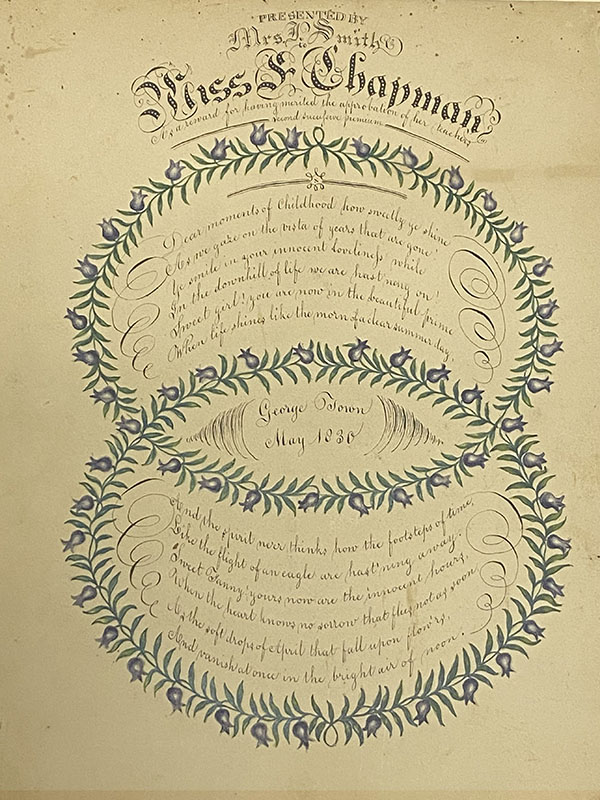 PRESENTED BY
Mrs. P. Smith
to
Miss F. Chapman
As a reward for having merited the approbation of her teachers
second sucessive premium
Dear moments of Childhood how sweetly ye shine
As we gaze on the vista of years that are gone
Ye smile in your innocent Loveliness while
In the downhill of life we are hast'ning on
Sweet girl! you are now in the beautiful prime
When life shines like the morn of a clear summer day,
George Town
May 1830
And the spirit ne'er thinks how the footsteps of time,
Like the flight of an eagle are hast'ning away.
Sweet Fanny! yours now are the innocent hours,
When the heart knows no sorrow that flies not as soon
As the soft drops of April that fall upon flow'rs,
And vanish at once in the bright air of noon.